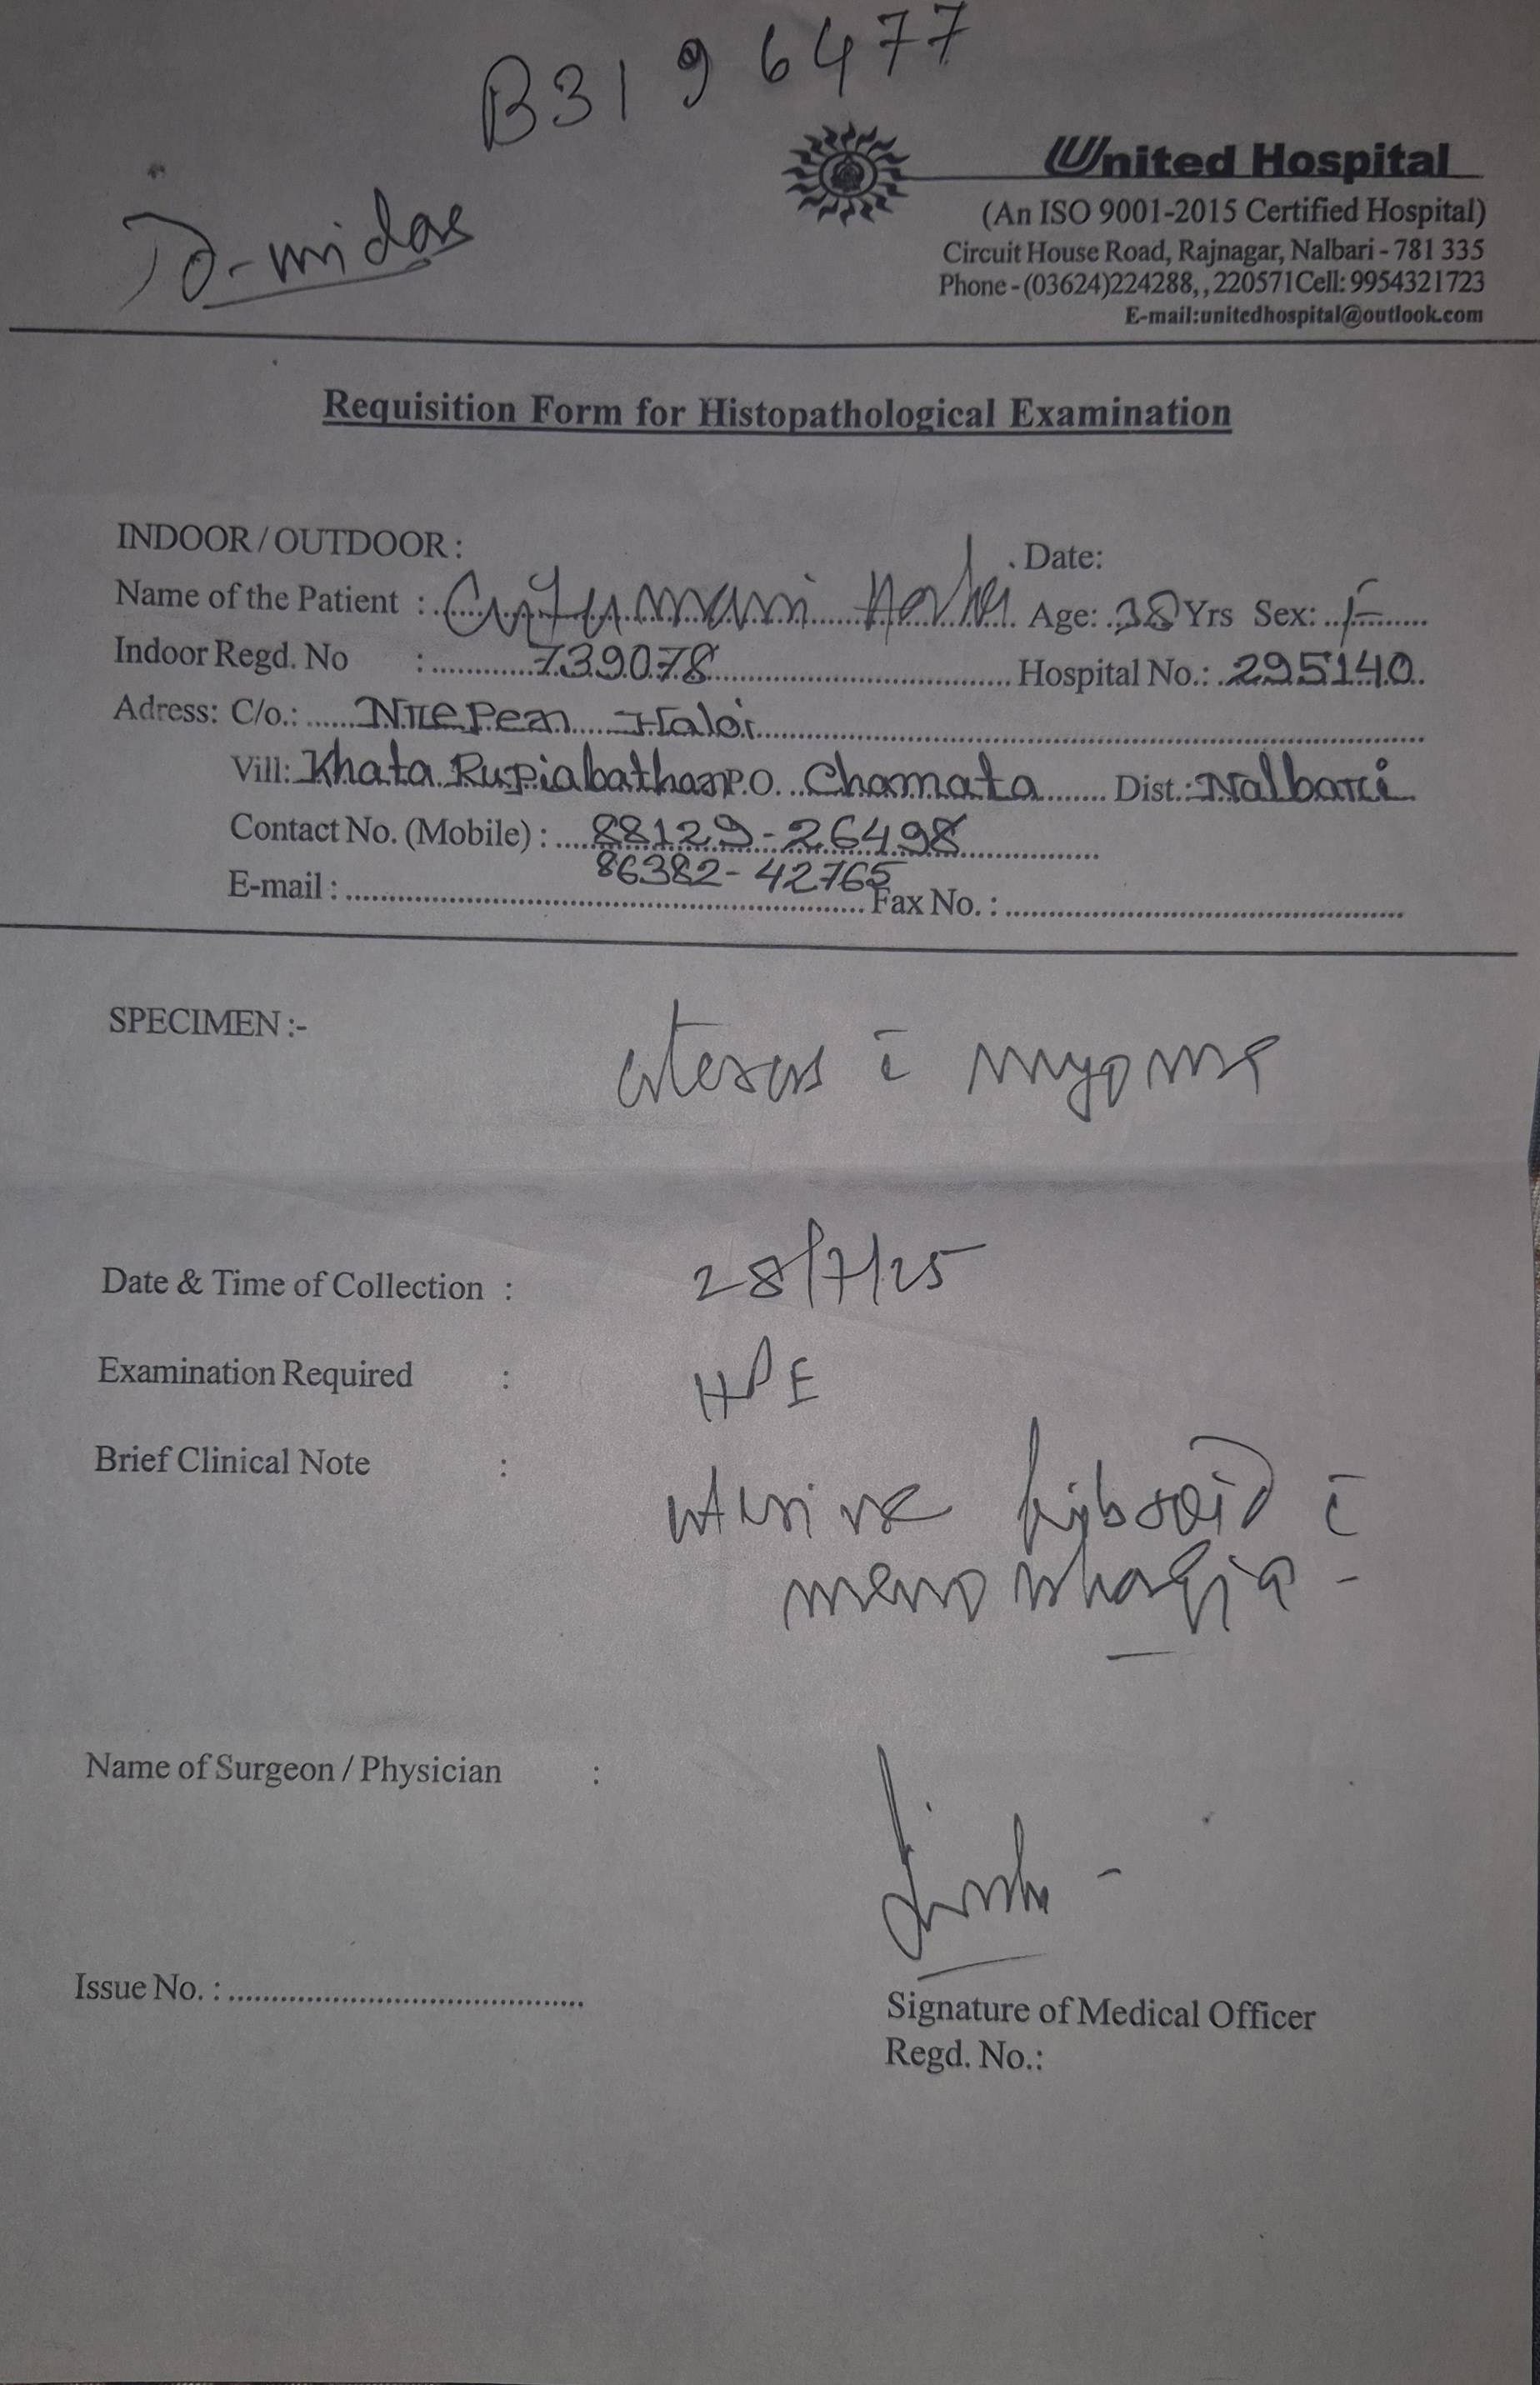 B3196477
United Hospital
To-midas
(An ISO 9001-2015 Certified Hospital)
Circuit House Road, Rajnagar, Nalbari - 781 335
Phone - (03624)224288, , 220571Cell: 9954321723
E-mail:unitedhospital@outlook.com
Requisition Form for Histopathological Examination
INDOOR / OUTDOOR : Date:
Name of the Patient : Age: 38 Yrs Sex: F
Indoor Regd. No : 739078 Hospital No.: 295140
Adress: C/o.: Haloi
Vill: Khata Rupiabathan P.O. Chamata Dist.: Nalbari
Contact No. (Mobile) : 88129-26498
86382-42765
E-mail : Fax No. :
SPECIMEN :- uterus c̄ myoma
Date & Time of Collection : 28/7/25
Examination Required : HPE
Brief Clinical Note : uterine fibroid c̄
menorrhagia -
Name of Surgeon / Physician :
Issue No. :
Signature of Medical Officer
Regd. No.: